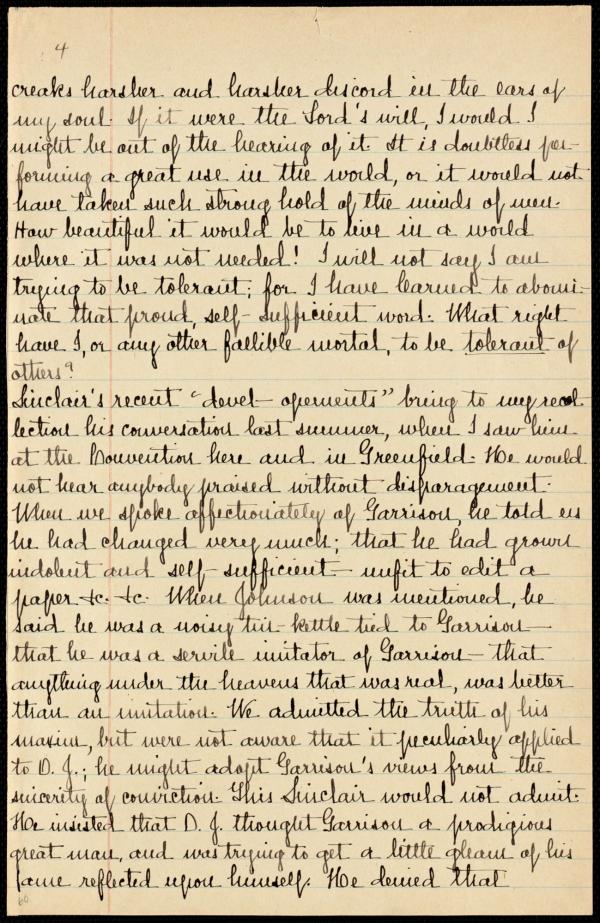 4
creaks harsher and harsher discord in the ears of
my soul. If it were the Lord's will, I would I
might be out of the hearing of it. It is doubtless per-
forming a great use in the world, or it would not
have taken such strong hold of the minds of men.
How beautiful it would be to live in a world
where it was not needed! I will not say I am
trying to be tolerant; for I have learned to abomi-
nate that proud, self-sufficient word. What right
have I, or any other fallible mortal, to be tolerant of
others?
Sinclair's recent "devel-opements" bring to my recol-
lection his conversation last summer, when I saw him
at the Convention here and in Greenfield. He would
not hear anybody praised without disparagement.
When we spoke affectionately of Garrison, he told us
he had changed very much; that he had grown
indolent and self-sufficient— unfit to edit a
paper &c. &c. When Johnson was mentioned, he
said he was a noisy tin-kettle tied to Garrison—
that he was a servile imitator of Garrison— that
anything under the heavens that was real, was better
than an imitation. We admitted the truth of his
maxim, but were not aware that it peculiarly applied
to O. J.; he might adopt Garrison's views from the
sincerity of conviction. This Sinclair would not admit.
He insisted that O. J. thought Garrison a prodigious
great man, and was trying to get a little gleam of his
fame reflected upon himself. He denied that
60